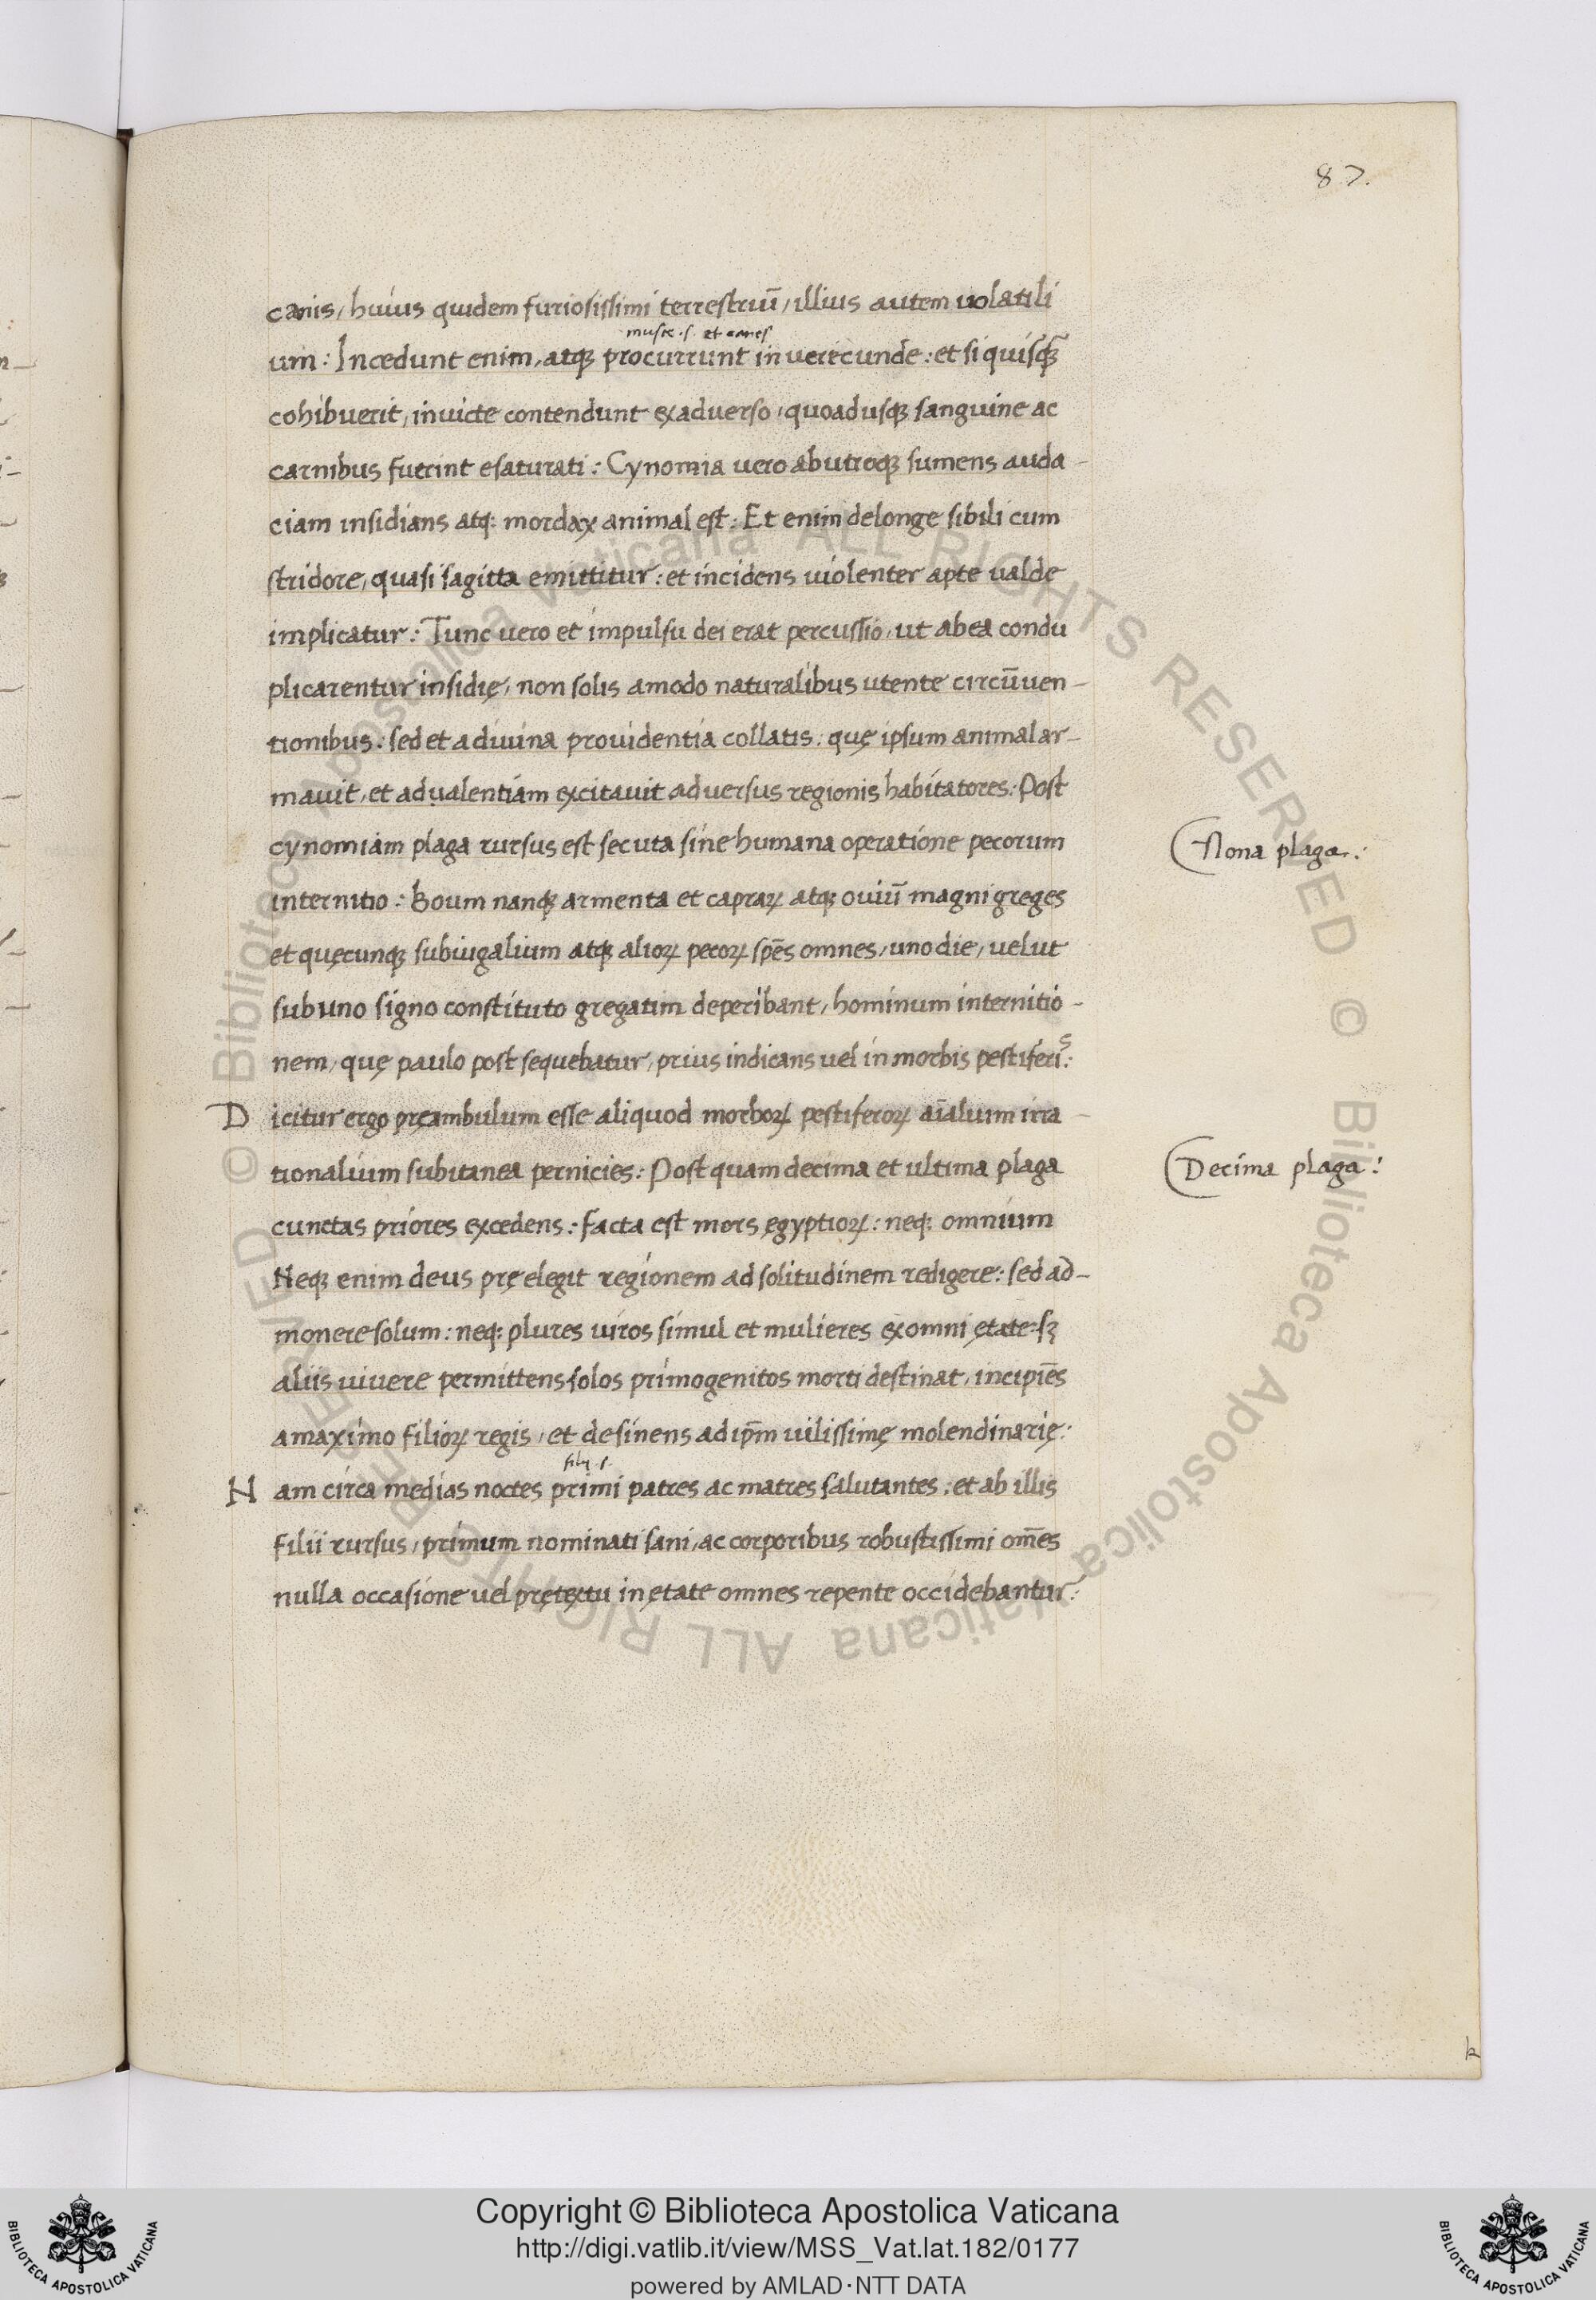 87.
canis, huius quidem furiosissimi terrestriū, illius autem uolatili
musce .s. et canes
um: Incedunt enim, atqꝫ procurrunt inuerecunde: et si quisqꝫ
cohibuerit, inuicte contendunt exaduerso, quoadusqꝫ sanguine ac
carnibus fuerint esaturati: Cynomia uero abutroqꝫ sumens auda-
ciam insidians atqꝫ mordax animal est: Et enim delonge sibili cum
stridore, quasi sagitta emittitur: et incidens uiolenter apte ualde
implicatur: Tunc uero et impulsu dei erat percussio, ut abea condu
plicarentur insidię, non solis amodo naturalibus utente circūuen-
tionibus: sed et a diuina prouidentia collatis: quę ipsum animal ar-
mauit, et adualentiam excitauit aduersus regionis habitatores: Post
cynomiam plaga rursus est secuta sine humana operatione pecorum
(Nona plaga:
internitio: Boum nanqꝫ armenta et capraꝝ atqꝫ ouiū magni greges
et quęcunqꝫ subiugalium atqꝫ alioꝝ pecoꝝ spēs omnes, uno die, velut
sub uno signo constituto gregatim deperibant, hominum internitio-
nem, quę paulo post sequebatur, prius indicans uel in morbis pestiferis:
Dicitur ergo pręambulum esse aliquod morboꝝ pestiferoꝝ aīalium irra-
tionalium subitanea pernicies: Post quam decima et ultima plaga
(Decima plaga:
cunctas priores excedens: facta est mors ęgyptioꝝ: neqꝫ omnium
Neqꝫ enim deus pręelegit regionem ad solitudinem redigere: sed ad-
monere solum: neqꝫ plures uiros simul et mulieres exomni ętate: sꝫ
aliis uiuere permittens solos primogenitos morti destinat, incipiēs
amaximo filioꝝ regis, et desinens adip̄m uilissimę molendinarię:
filij .s.
Nam circa medias noctes primi patres ac matres salutantes: et ab illis
filii rursus, primum nominati sani, ac corporibus robustissimi om̄es
nulla occasione uel prętextu inętate omnes repente occidebantur:
k
Copyright © Biblioteca Apostolica Vaticana
http://digi.vatlib.it/view/MSS_Vat.lat.182/0177
powered by AMLAD·NTT DATA
BIBLIOTECA APOSTOLICA VATICANA
BIBLIOTECA APOSTOLICA VATICANA
© Biblioteca Apostolica Vaticana ALL RIGHTS RESERVED © Biblioteca Apostolica Vaticana ALL RIGHTS RESERVED